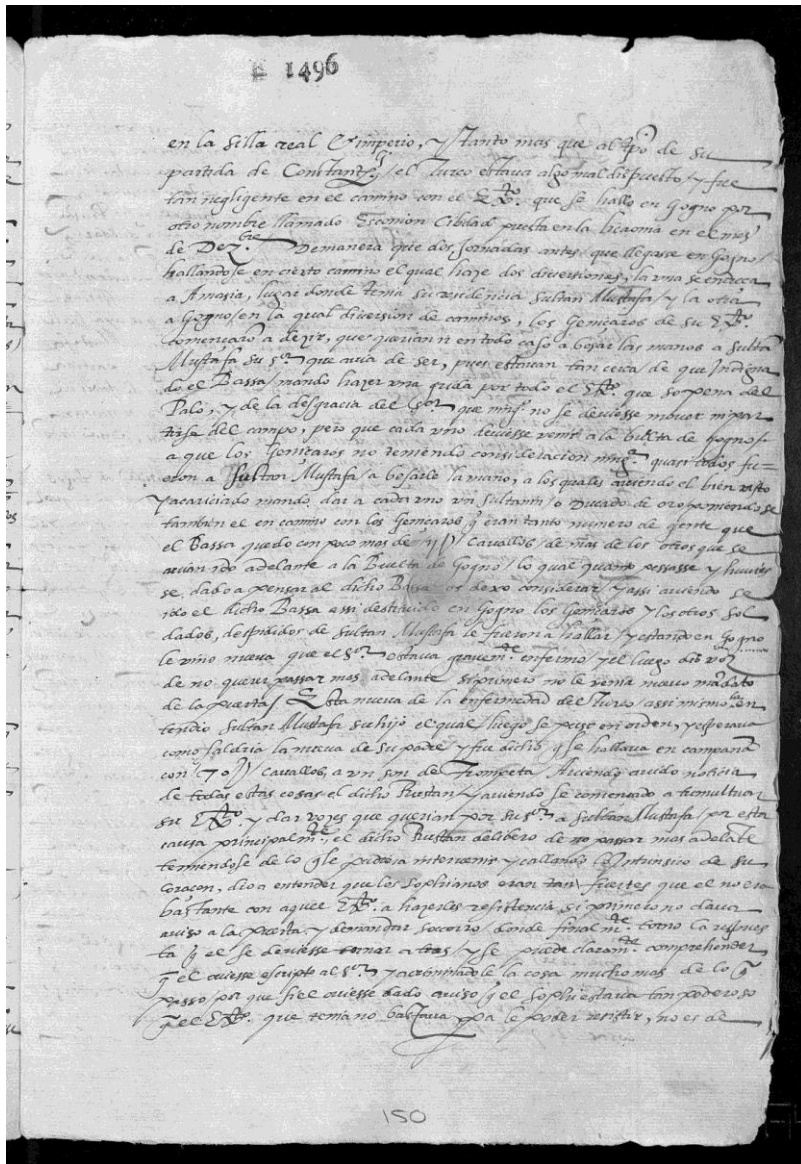 E 1496
en la silla real & imperio, y tanto mas que al tpo de su
partida de Constantª / el Turco estava algo mal dispuesto / y fue
tan negligente en el camino con el Exto. que se hallo en Gogno por
otro nombre llamado Ciudad puesta en la licaonia en el mes
de Dezbre Demanera que dos Jornadas antes / que llegase en Gogno /
hallandose en cierto camino el qual haze dos diversiones, la una se endreça
a Amasia, lugar donde tenia su residencia Sultan Mustafa / y la otra
a Gogno / en la qual diversion de caminos, los Geniçaros de su Exto.
comencarõ a dezir, que querian ir en todo caso a besar las manos a Sultã
Mustafa su sor que avia de ser, pues estavan tan cerca de que Indigna
do el Bassa / mando hazer una grida por todo el Exto. que so pena del
Palo, y de la desgracia del Sor que no se deviesse mover ni par
tirse del campo, pero que cada uno deviesse venir a la buelta de Gogno /
a que los Geniçaros no teniendo consideracion quasi todos fue=
ron a Sultan Mustafa / a besarle la mano, a los quales aviendo el bien visto
y acariciado mando dar a cada uno un Sultani / o Ducado de oro poniendose
tambien el en camino con los Geniçaros q eran tanto numero de gente que
el Bassa quedo con poco mas de cavallos / de mas de los otros que se
avian ido adelante a la Buelta de Gogno / lo qual quanto pessasse y
se, dado a pensar al dicho Bassa os dexo considerar / y assi aviendo se
ido el dicho Bassa assi en Gogno los Geniçaros y los otros sol
dados, despedidos de Sultan Mustafa le fueron a hallar / y estando en Gogno
le vino nueva que el Sor estava gravemte enfermo / y el luego dio voz
de no querer passar mas adelante si primero no le venia nuevo mãdato
de la puerta / Esta nueva de la enfermedad del Turco / assi mismo la en
tendio Sultan Mustafa su hijo el qual / luego se puso en orden, y esperava
como saldria la nueva de su padre / y fue dicho q se hallava en campaña
con 70 cavallos, a un son de Trompeta / Aviendo avido noticia
de todas estas cosas el dicho Rustan / y aviendo se comencado a tumultuar
su Exto. y dar vozes que querian por su sor a Sultan Mustafa / por esta
causa principalmte, el dicho Rustan delibero de no passar mas adelãte
temiendose de lo q le podria intervenir y callando lo Intrinsico de su
coraçon, dio a entender que los Sophianos eran tan fuertes que el no era
bastante con aquel Exto. a hazerles resistencia si primero no dava
aviso a la puerta / y demandar socorro / donde finalmte torno la respues
ta q el se deviesse tornar a tras / y se puede claramte comprehender
q el oviesse escripto al sor y la cosa mucho mas de lo q
passo / por que si el oviesse dado aviso q el Sophi estava tan poderoso
q el Exto. que tenia no bastava pa le poder resistir, no es de
150